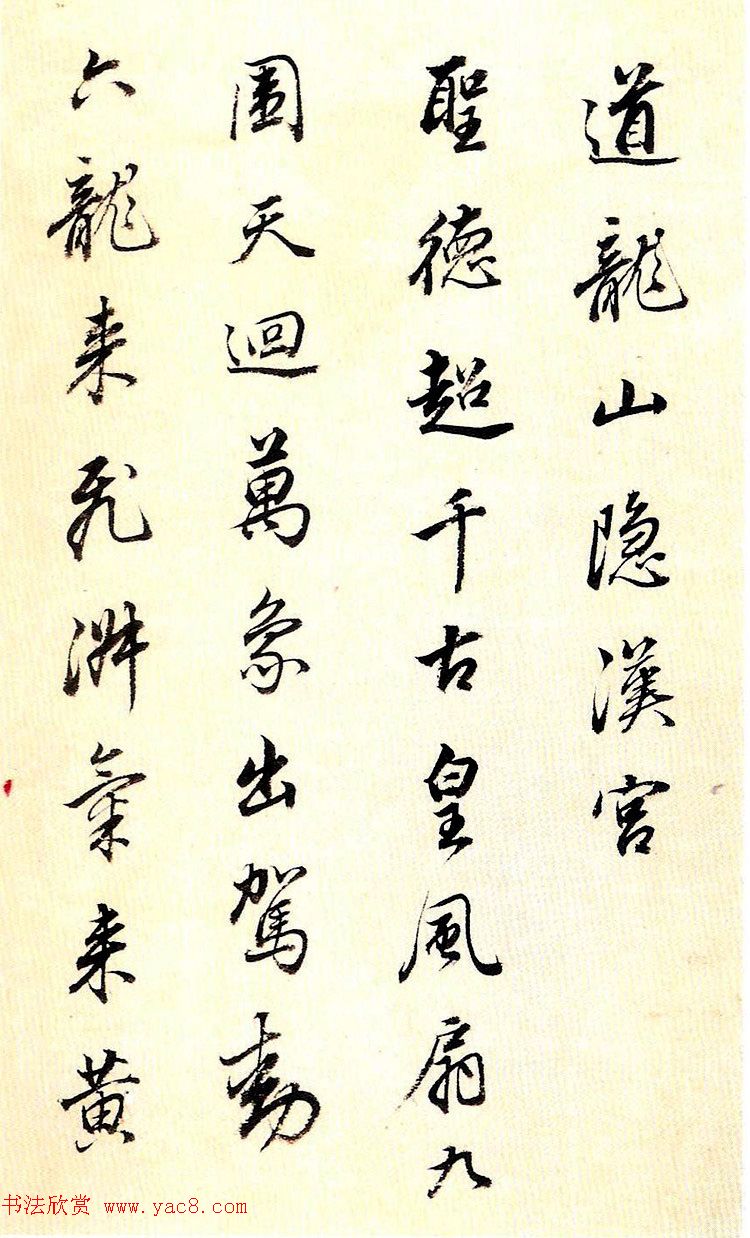 道龍山隐漢宫
聖德超千古皇風扇九
圍天迴萬象出駕動
六龍来飛淑氣来黄
书法欣赏 www.yac8.com